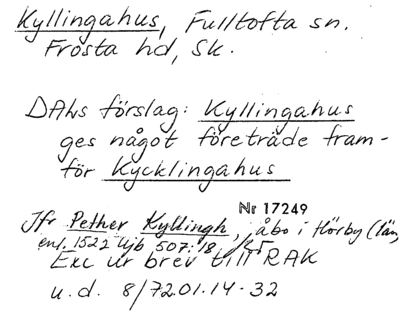 Kyllingahus, Fulltofta sn.
Frosta hd, Sk.
DALs förslag: Kyllingahus
ges något företräde fram-
för Kycklingahus
Nr 17249
Jfr Pether Kyllingh, åbo i Hörby (län,
enl. 1522 Ljb 507:18
Exc ur brev till RAK
u.d. 8/7201.14-32